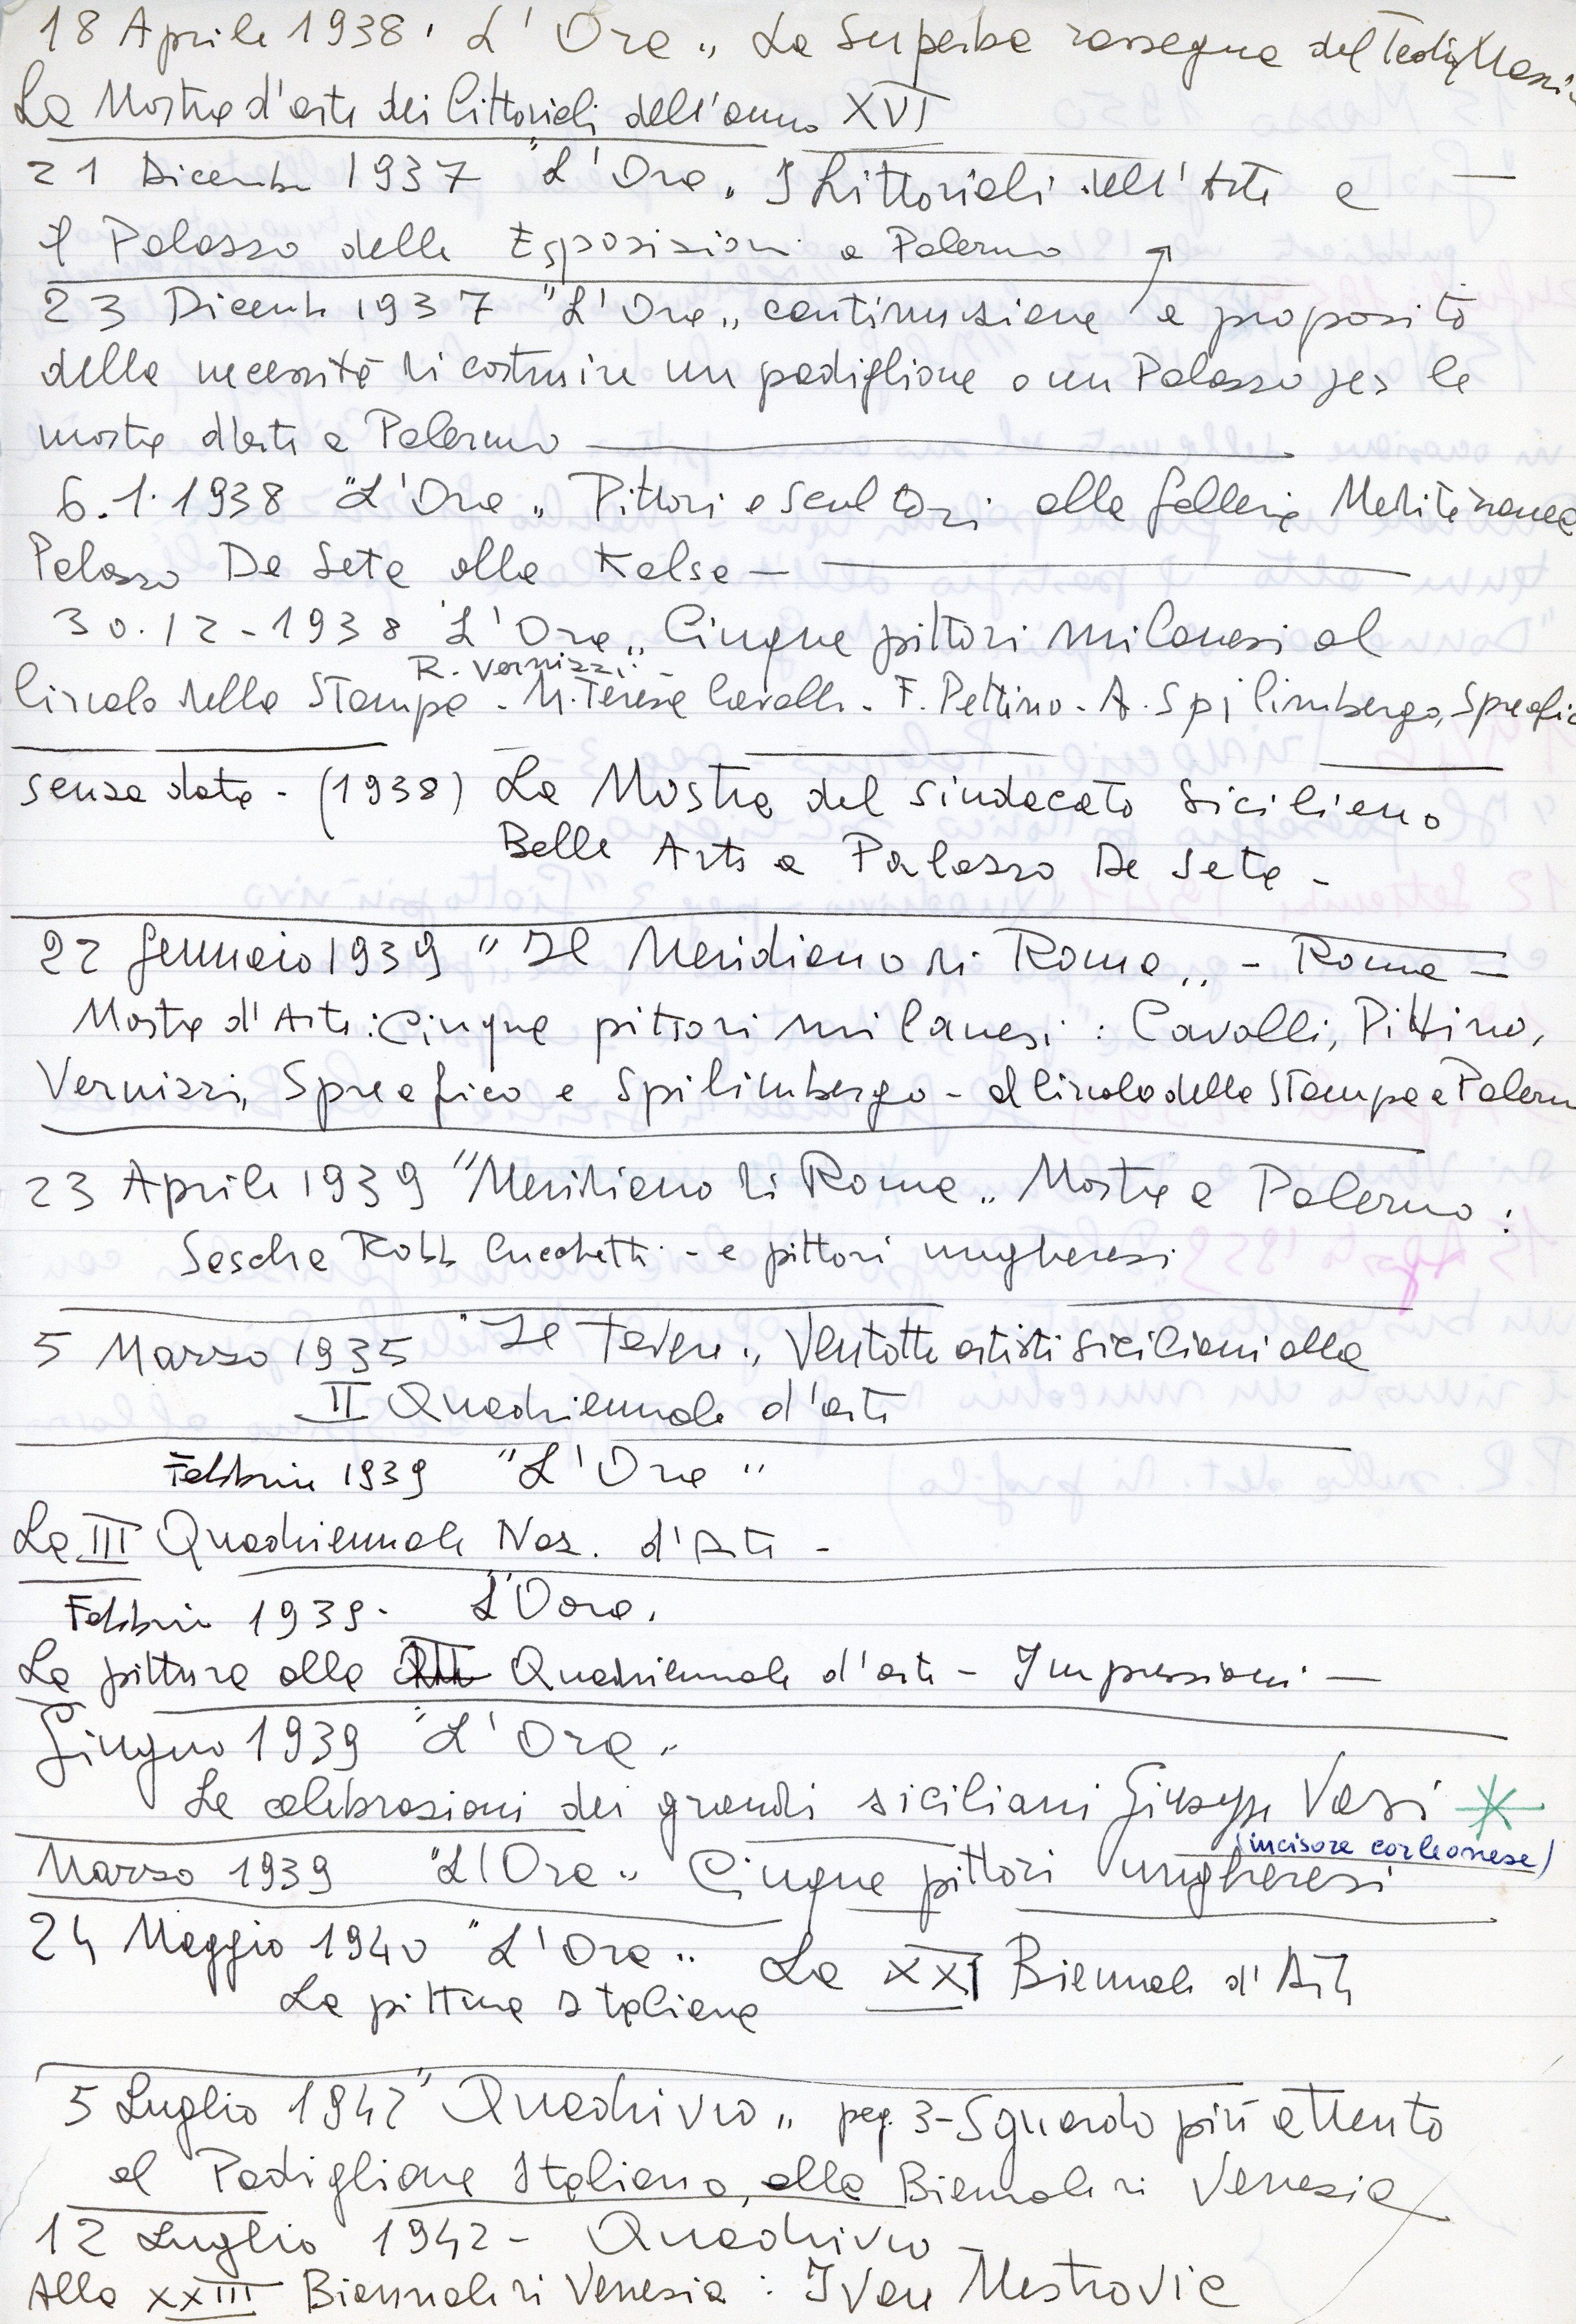 18 Aprile 1938. L'Ora „ La superba rassegna del Teatro Massi
La Mostra d'arte dei Littoriali dell'anno XVI
21 Dicembre 1937 "L'Ora„ I Littoriali dell'Arte e —
il Palazzo delle Esposizioni a Palermo
23 Dicemb 1937 "L'Ora„ continuazione a proposito
della necessità di costruire un padiglione o un Palazzo per le
mostre d'arte a Palermo —
6.1.1938 "L'Ora„ Pittori e scultori alla Galleria Mediterranea
Palazzo De Seta alla Kalsa —
30.12-1938 "L'Ora„ Cinque pittori milanesi al
R. Vernizzi -
Circolo della Stampa - M. Teresa Cavalli - F. Pittino - A. Spilimbergo, Spreafico
senza data - (1938) La Mostra del Sindacato Siciliano
Belle Arti a Palazzo De Seta -
22 Gennaio 1939 "Il Meridiano di Roma„ - Roma =
Mostre d'Arte: Cinque pittori milanesi: Cavalli, Pittino,
Vernizzi, Spreafico e Spilimbergo - al Circolo della Stampa a Palerm
23 Aprile 1939 "Meridiano di Roma„ Mostre a Palermo:
Sascha Cucchetti - e pittori ungheresi
5 Marzo 1935 "Il Tevere„ Ventotto artisti siciliani alla
II Quadriennale d'arte
Febbraio 1939 "L'Ora"
La III Quadriennale Naz. d'Arte -
Febbraio 1939 - L'Ora.
La pittura alla Quadriennale d'arte - Impressioni —
Giugno 1939 "L'Ora„
Le celebrazioni dei grandi siciliani Giuseppe Vasi *
(incisore corleonese)
Marzo 1939 "L'Ora„ Cinque pittori ungheresi
24 Maggio 1940 "L'Ora„ La XXI Biennale d'Arte
La pittura italiana
5 Luglio 1942 "Quadrivio„ pag. 3 - Sguardo più attento
al Padiglione Italiano, alla Biennale di Venezia
12 Luglio 1942 - Quadrivio -
Alla XXIII Biennale di Venezia: Ivan Mestrovic